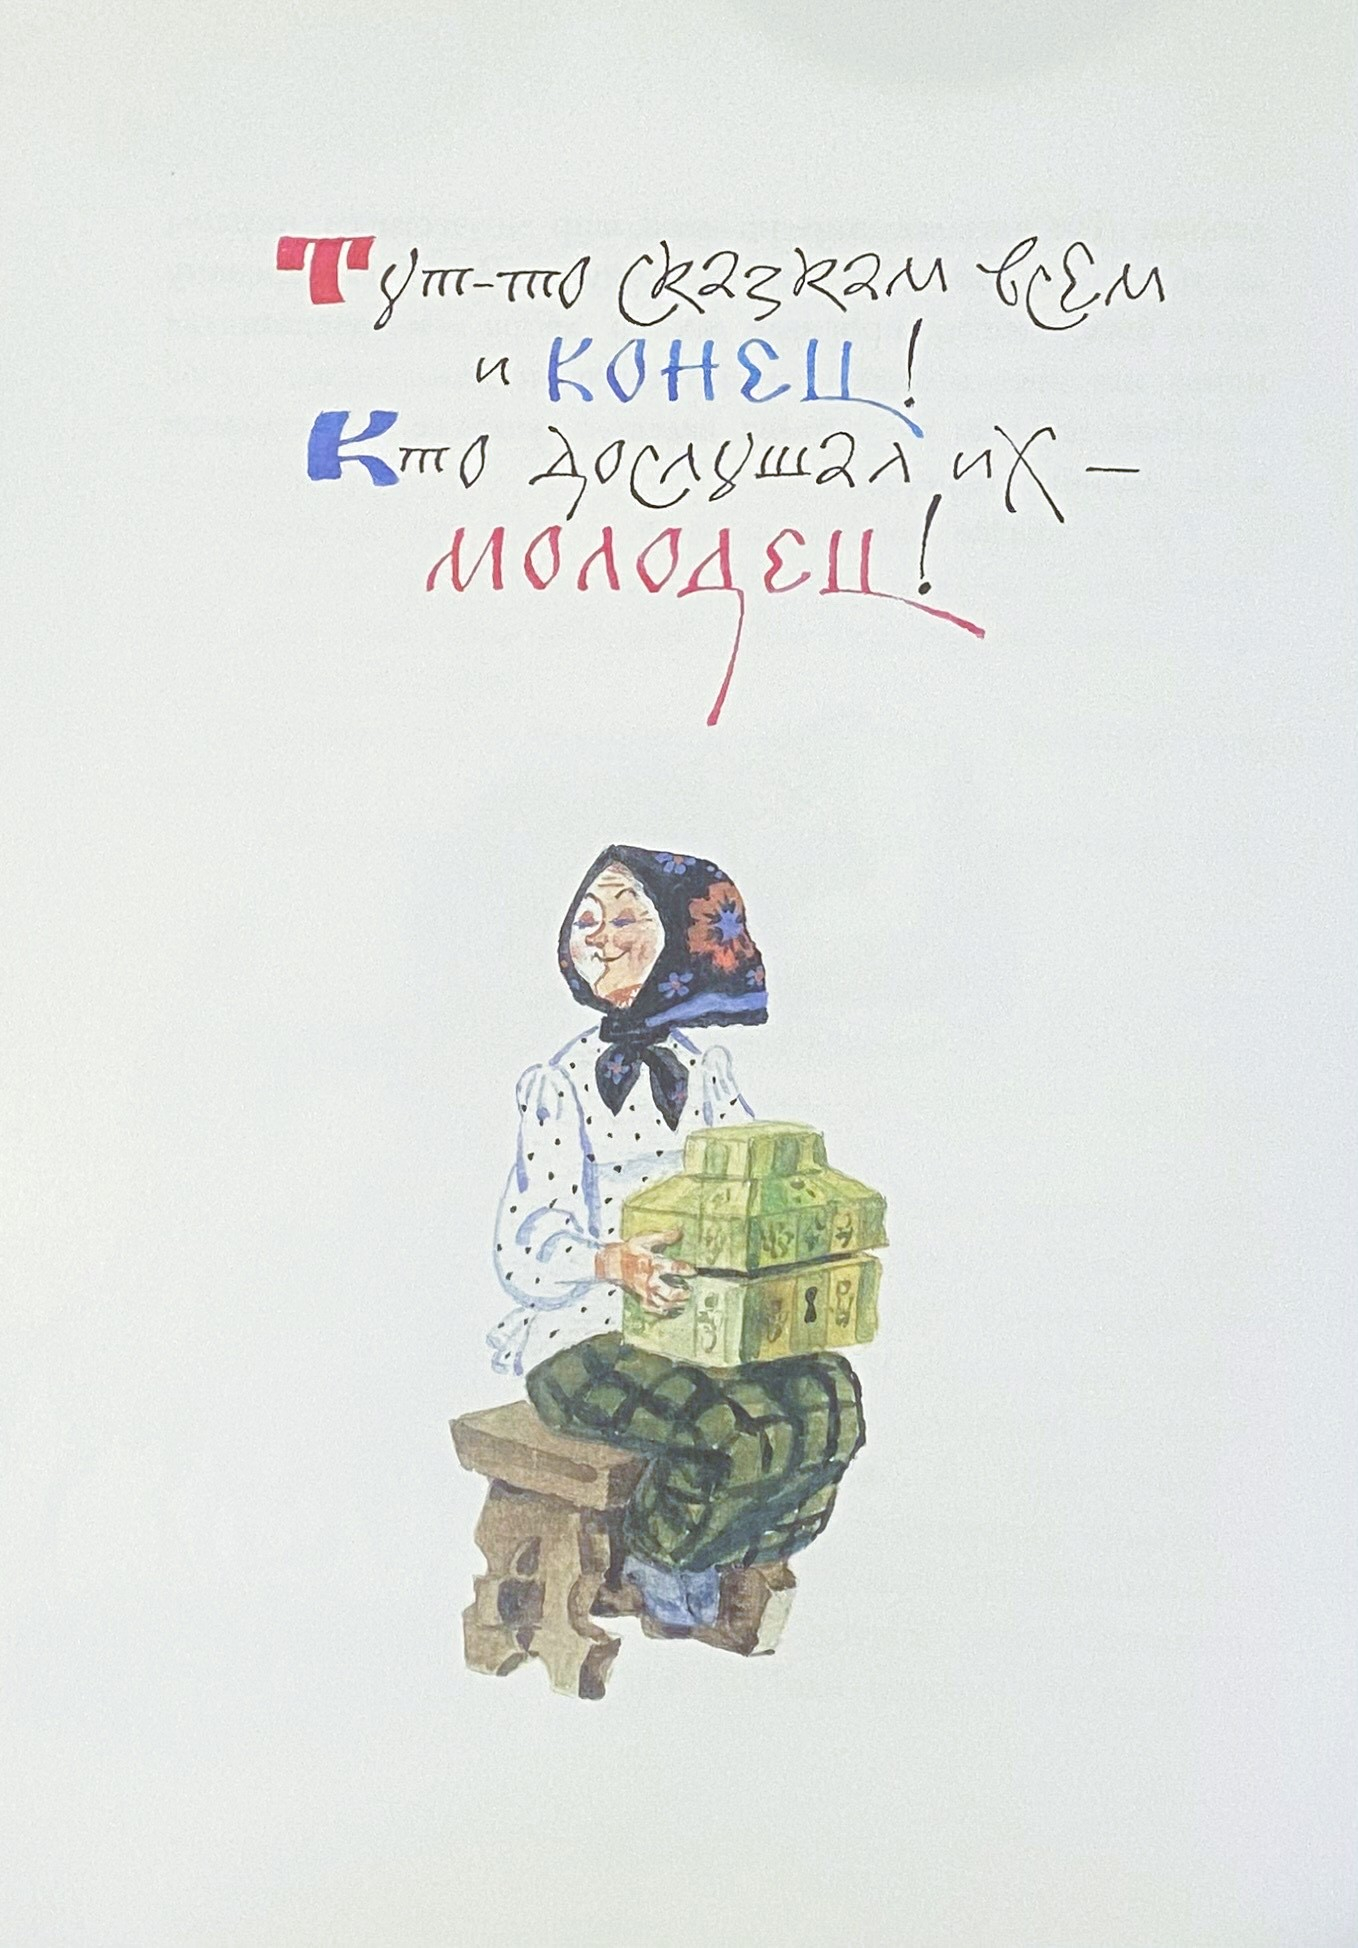 Тут-то сказкам всем
и КОНЕЦ!
Кто дослушал их —
МОЛОДЕЦ!